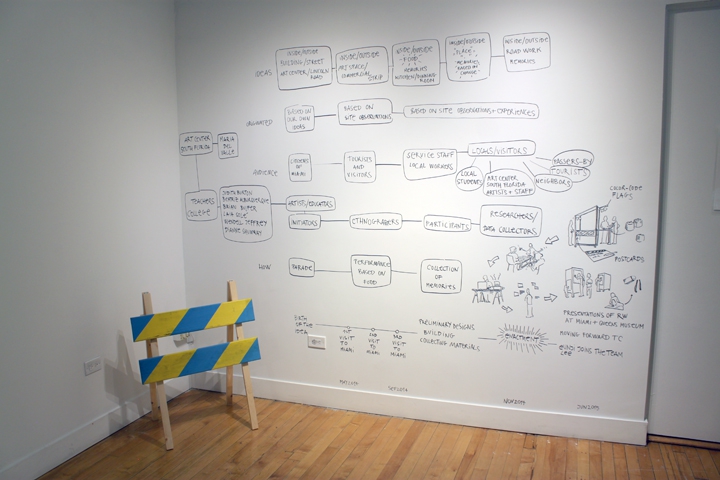 IDEAS
INSIDE/OUTSIDE
BUILDING/STREET
ART CENTER/LINCOLN
ROAD
INSIDE/OUTSIDE
ART SPACE/
COMMERCIAL
STRIP
INSIDE/OUTSIDE
FOOD
MEMORIES
KITCHEN/DINING
ROOM
INSIDE/OUTSIDE
PLACE
MEMORIES
BASED ON
CHANGE
INSIDE/OUTSIDE
ROAD WORK
MEMORIES
BASED ON
OUR OWN
IDEAS
BASED ON
SITE OBSERVATIONS
BASED ON SITE OBSERVATIONS + EXPERIENCES
ART CENTER
SOUTH FLORIDA
MARIA
DEL
VALLE
AUDIENCE
CITIZENS
OF
MIAMI
TOURISTS
AND
VISITORS
SERVICE STAFF
LOCAL WORKERS
LOCALS/VISITORS
LOCAL
STUDENTS
ART CENTER
SOUTH FLORIDA
ARTISTS + STAFF
PASSERS-BY
TOURISTS
NEIGHBORS
TEACHERS
COLLEGE
JUDITH BURTON
ARTISTS/EDUCATORS
INITIATORS
ETHNOGRAPHERS
PARTICIPANTS
RESEARCHERS/
DATA COLLECTORS
COLOR-CODE
FLAGS
POSTCARDS
HOW
PARADE
PERFORMANCE
BASED ON
FOOD
COLLECTION
OF
MEMORIES
PRESENTATIONS OF RW
AT MIAMI + QUEENS MUSEUM
BIRTH
OF THE
IDEA
1ST
VISIT
TO
MIAMI
2ND
VISIT
TO
MIAMI
3RD
VISIT
TO
MIAMI
PRELIMINARY DESIGNS
BUILDING
COLLECTING MATERIALS
ENACTMENT
MOVING FORWARD TC
JOINS THE TEAM
NOV 2014